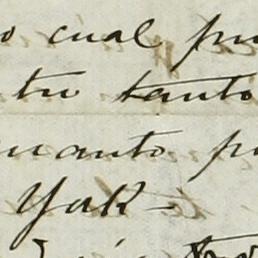 o cual pu
tu tanto
cuanto p
York -